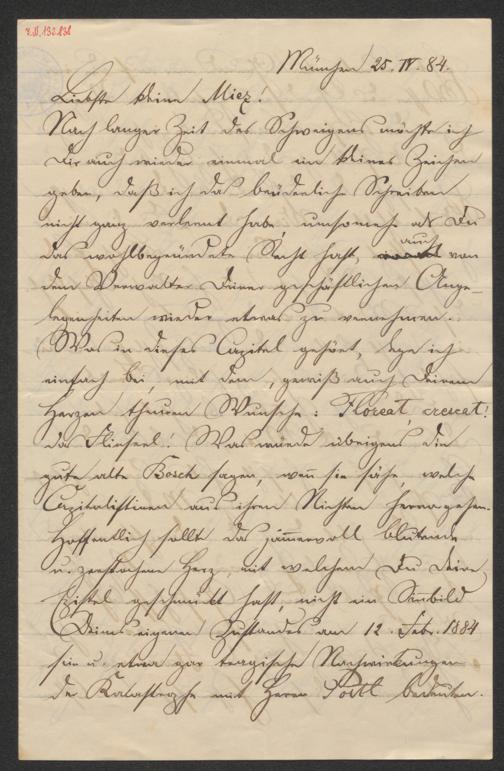 München 25. IV. 84.
Liebste kleine Miez!
Nach langer Zeit des Schweigens möchte ich
Dir auch wieder einmal ein kleines Zeichen
geben, daß ich das brüderliche Schreiben
nicht ganz verlernt habe, umsomehr als Du
das wohlbegründete Recht hast, auch von
dem Verwalter Deiner geschäftlichen Ange-
legenheiten wieder etwas zu vernehmen.
Was in dieses Capitel gehört, lege ich
einfach bei, mit dem, gewiß auch Deinem
Herzen theuren Wunsche: Floreat, crescat!
das Flinserl! Was würde übrigens die
gute alte Bosch sagen, wenn sie sähe, welche
Capitalistinen aus ihren Nichten hervorgehen.
Hoffentlich sollte das jammervoll blutende
u. zerstochene Herz, mit welchem Du Deine
Epistel geschmückt hast, nicht ein Sinbild
Deines eigenen Zustandes am 12. Febr. 1884
sein u. etwa gar tragische Nachwirkungen
der Katastrophe mit Herrn bedeuten.